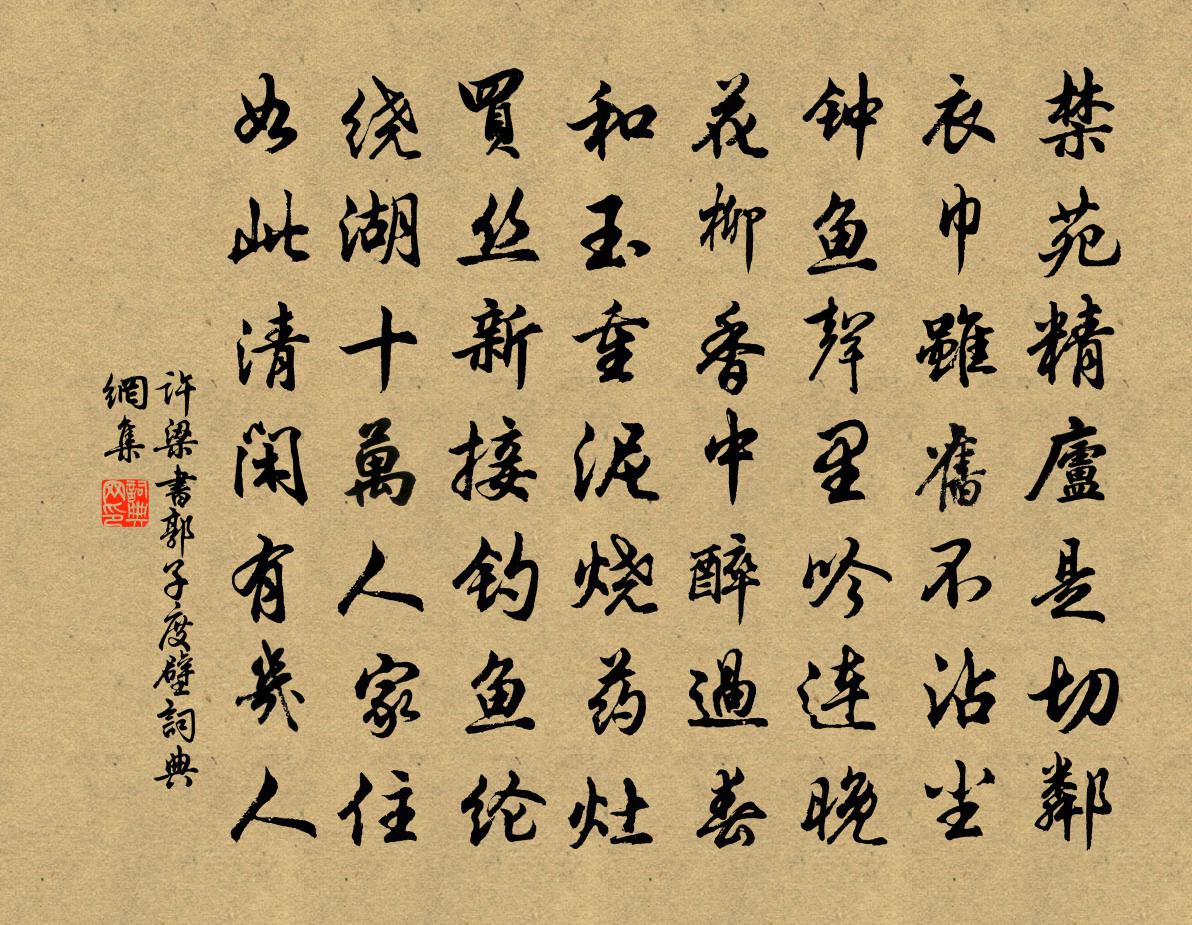 禁苑精廬是切鄰
衣巾雖舊不沾尘
钟鱼聲里吟連晚
花柳香中醉過春
和玉重泥烧药灶
買丝新接钓鱼纶
绕湖十萬人家住
如此清闲有幾人
许梁書郭子度壁詞典
網集
詞典网印